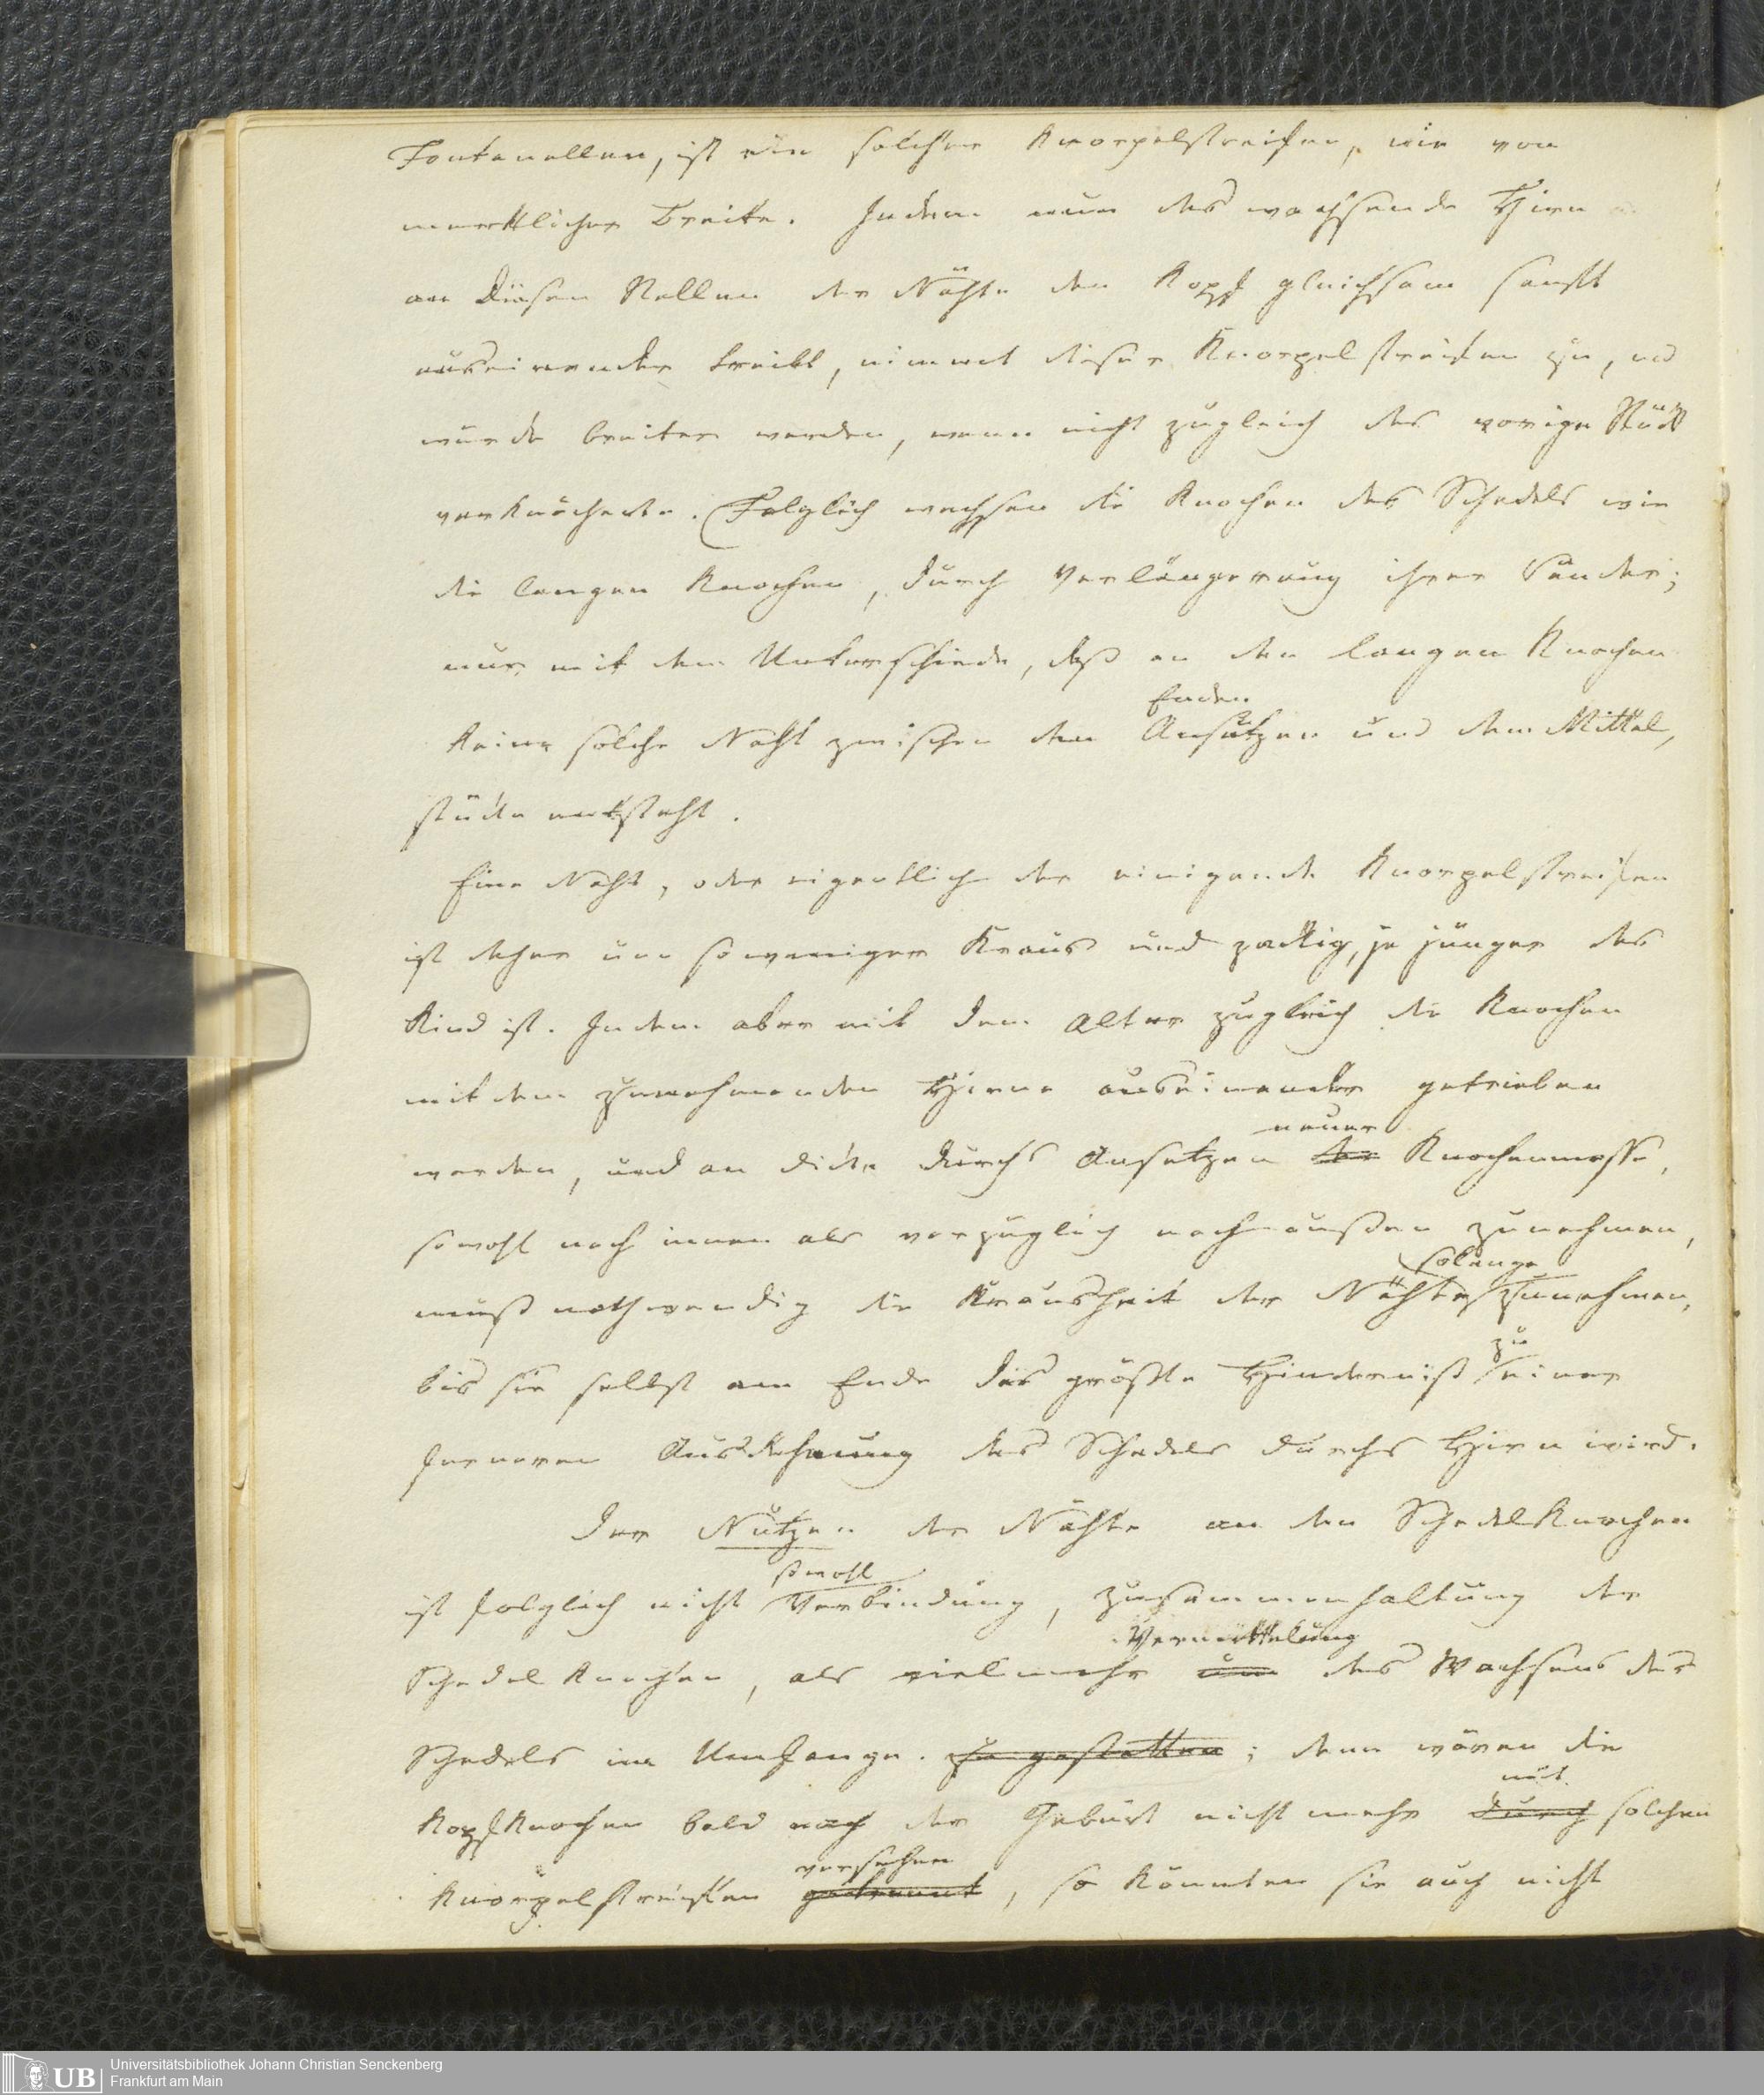 Fontanellen, ist ein solcher Knorpelstreifen, wie von
merklicher Breite. Indem nun das wachsende Hirn
an diesen Stellen der Nähte den Kopf gleichsam sanft
auseinander treibt, nimmt dieser Knorpelstreifen zu, und
würde breiter werden, wenn nicht zugleich das vorige Stück
verknöcherte. Folglich wachsen die Knochen des Schedels wie
die langen Knochen, durch Verlängerung ihrer Ränder;
nur mit dem Unterschiede, daß an den langen Knochen
Enden
keine solche Naht zwischen den Ansätzen und dem Mittel,
stücke entsteht.
Eine Naht, oder eigentlich der einigende Knorpelstreifen
ist daher um so weniger kraus und zackig, je jünger das
Kind ist. Indem aber mit dem Alter zugleich die Knochen
mit dem zunehmenden Hirne auseinander getrieben
neuer
werden, und an dicke durchs Ansetzen der Knochenmasse,
sowohl nach innen als vorzüglich nach außen zunehmen,
solange
muß nothwendig die Krausheit der Nähte zunehmen,
zu
bis sie selbst am Ende das größte Hinderniß einer
ferneren Ausdehnung des Schedels durchs Hirn wird.
Der Nutzen der Nähte an den Schedelknochen
sowohl
ist folglich nicht Verbindung, Zusammenhaltung der
Vermittelung
Schedelknochen, als vielmehr um das Wachsens des
Schedels im Umfange. zu gestatten; denn wären die
mit
Kopfknochen bald nach der Geburt nicht mehr durch solchen
versehen
Knorpelstreifen getrennt, so könnten sie auch nicht
UB
Universitätsbibliothek Johann Christian Senckenberg
Frankfurt am Main